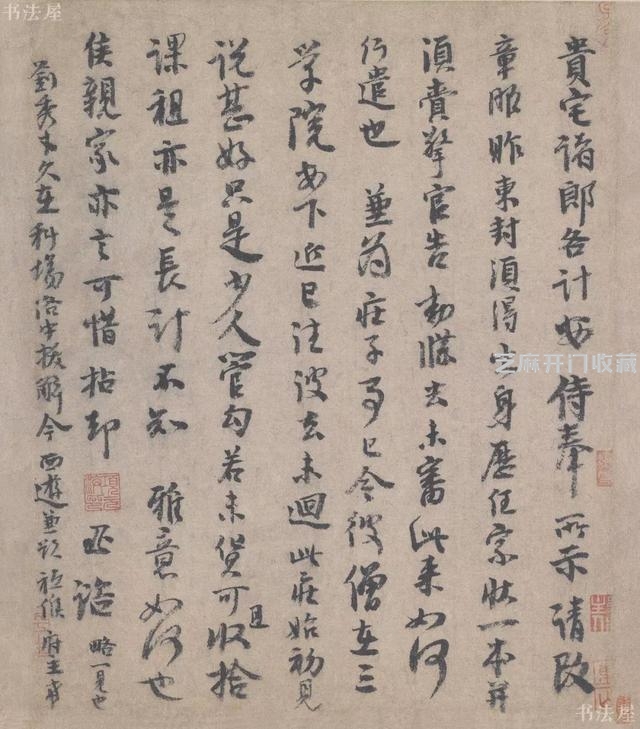 貴宅諸郎各計安侍奉所示請改
章服昨東封須得出身歷任家狀一本并
須賫擎官告勅牒去未審此来如何
行遣也 兼為庄子事已令彼僧在三
学院安下近已往彼去未迴此庄始初見
说甚好只是少人管勾若未貨可且收拾
课租亦是長計不知 雅意如何也
侯親家亦言可惜拈却 諮
劉秀才久在科場洛中拔解今西遊兼欲祗候府主
略一見也
书法屋
芝麻开门收藏
书法屋